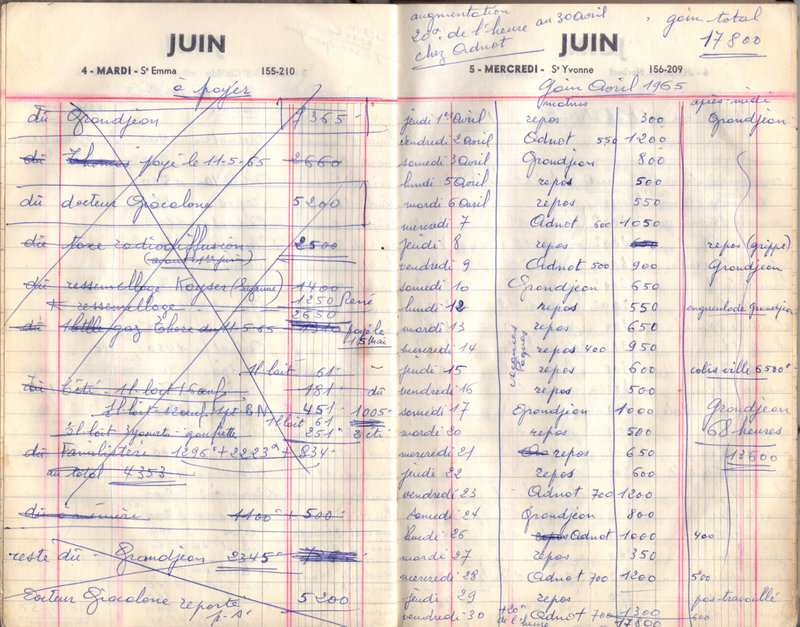 JUIN
4 - MARDI - Sᵗ Emma 155-210
a payer
dû Grandjean 7365
dû Thomas payé le 11-5-65 2660
dû docteur Giacolone 5200
dû taxe radiodiffusion 2500
(avant 1er juin)
dû ressemellage Kayser (Suzanne) 1400
ressemellage 1250 René
2650
dû gaz Thore du 11-5-65 payé le
15 mai
1l lait 61
dû Cité 1l lait 181 dû
451 1005
1l lait 61
3l lait 3 yaourts 251 Cité
dû Familistère 1296 + 2223 + 834
au total 4353
dû a mémère 1100 + 500
reste dû - Grandjean 2345
docteur Giacolone reporté 5200
p. S.
augmentation
20ᶠ de l'heure au 30 avril
chez Adnot
gain total
17800
JUIN
5 - MERCREDI - Sᵗ Yvonne 156-209
Gain Avril 1965
matins après-midi
jeudi 1er avril repos 300 Grandjean
vendredi 2 avril Adnot 550 1200
samedi 3 avril Grandjean 800
lundi 5 avril repos 500
mardi 6 avril repos 550
mercredi 7 Adnot 600 1050
jeudi 8 repos repos (grippe)
vendredi 9 Adnot 500 900 Grandjean
samedi 10 Grandjean 650
lundi 12 repos 550 engueulade Grandjean
mardi 13 repos 650
mercredi 14 repos 400 950
vacances Pâques
jeudi 15 repos 600 colis ville 6500
vendredi 16 repos 500
samedi 17 Grandjean 1000 Grandjean
mardi 20 repos 500 68 heures
mercredi 21 repos 650 13600
jeudi 22 repos 600
vendredi 23 Adnot 700 1200
samedi 24 Grandjean 800
lundi 26 Adnot 1000 400
mardi 27 repos 350
mercredi 28 Adnot 700 1200 500
jeudi 29 repos pas travaillé
vendredi 30 +20ᶠ de l'heure Adnot 700 1300 600
17800